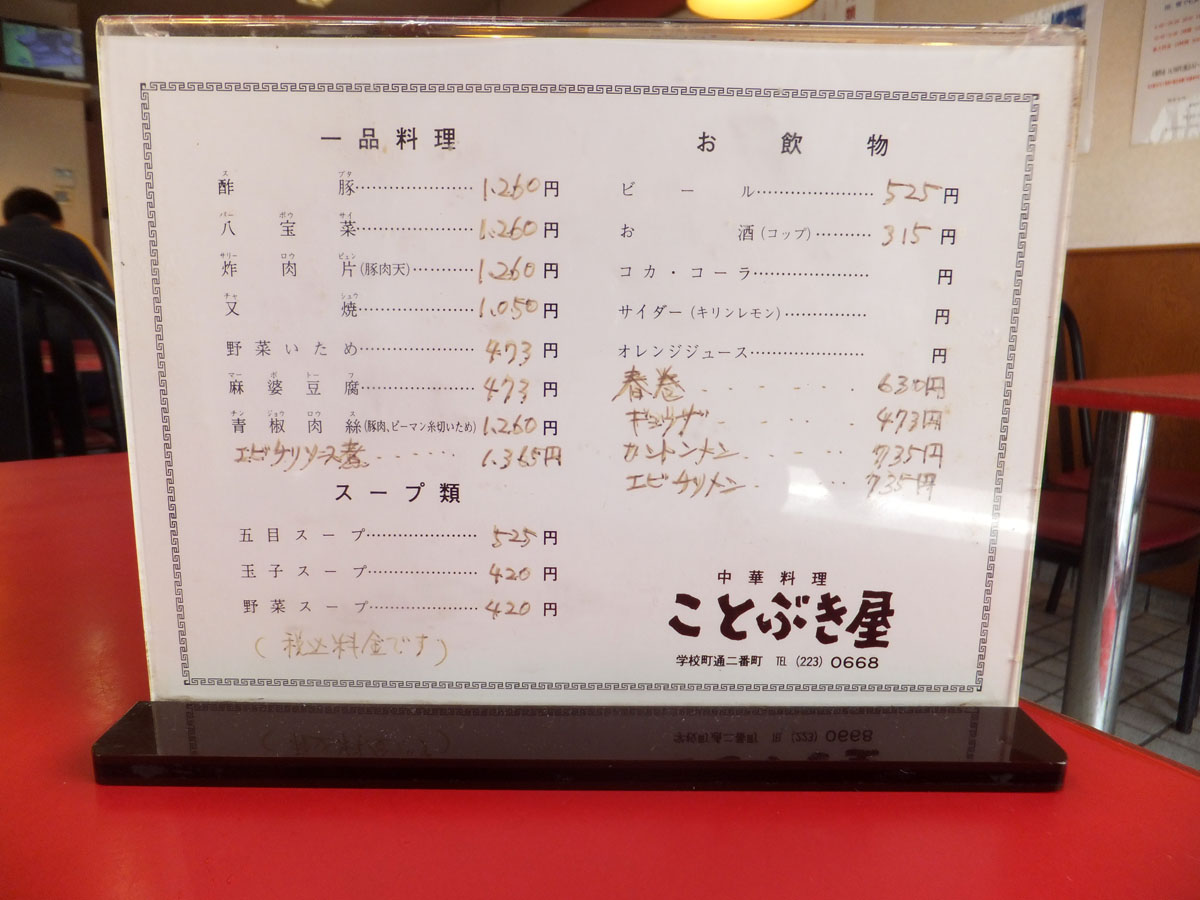 一品料理
酢豚 1,260円
スブタ
八宝菜 1,260円
パーポウサイ
炸肉片(豚肉天) 1,260円
サリーロウピェン
叉焼 1,050円
チャシュウ
野菜いため 473円
麻婆豆腐 473円
マーボトーフ
青椒肉絲(豚肉、ピーマン糸切いため) 1,260円
チンジョウロウス
エビチリソース煮 1,365円
スープ類
五目スープ 525円
玉子スープ 420円
野菜スープ 420円
(税込料金です)
お飲物
ビール 525円
お酒(コップ) 315円
コカ・コーラ 円
サイダー(キリンレモン) 円
オレンジジュース 円
春巻 630円
ギョウザ 473円
カントンメン 735円
エビチリメン 735円
中華料理
ことぶき屋
学校町通二番町 TEL (223) 0668